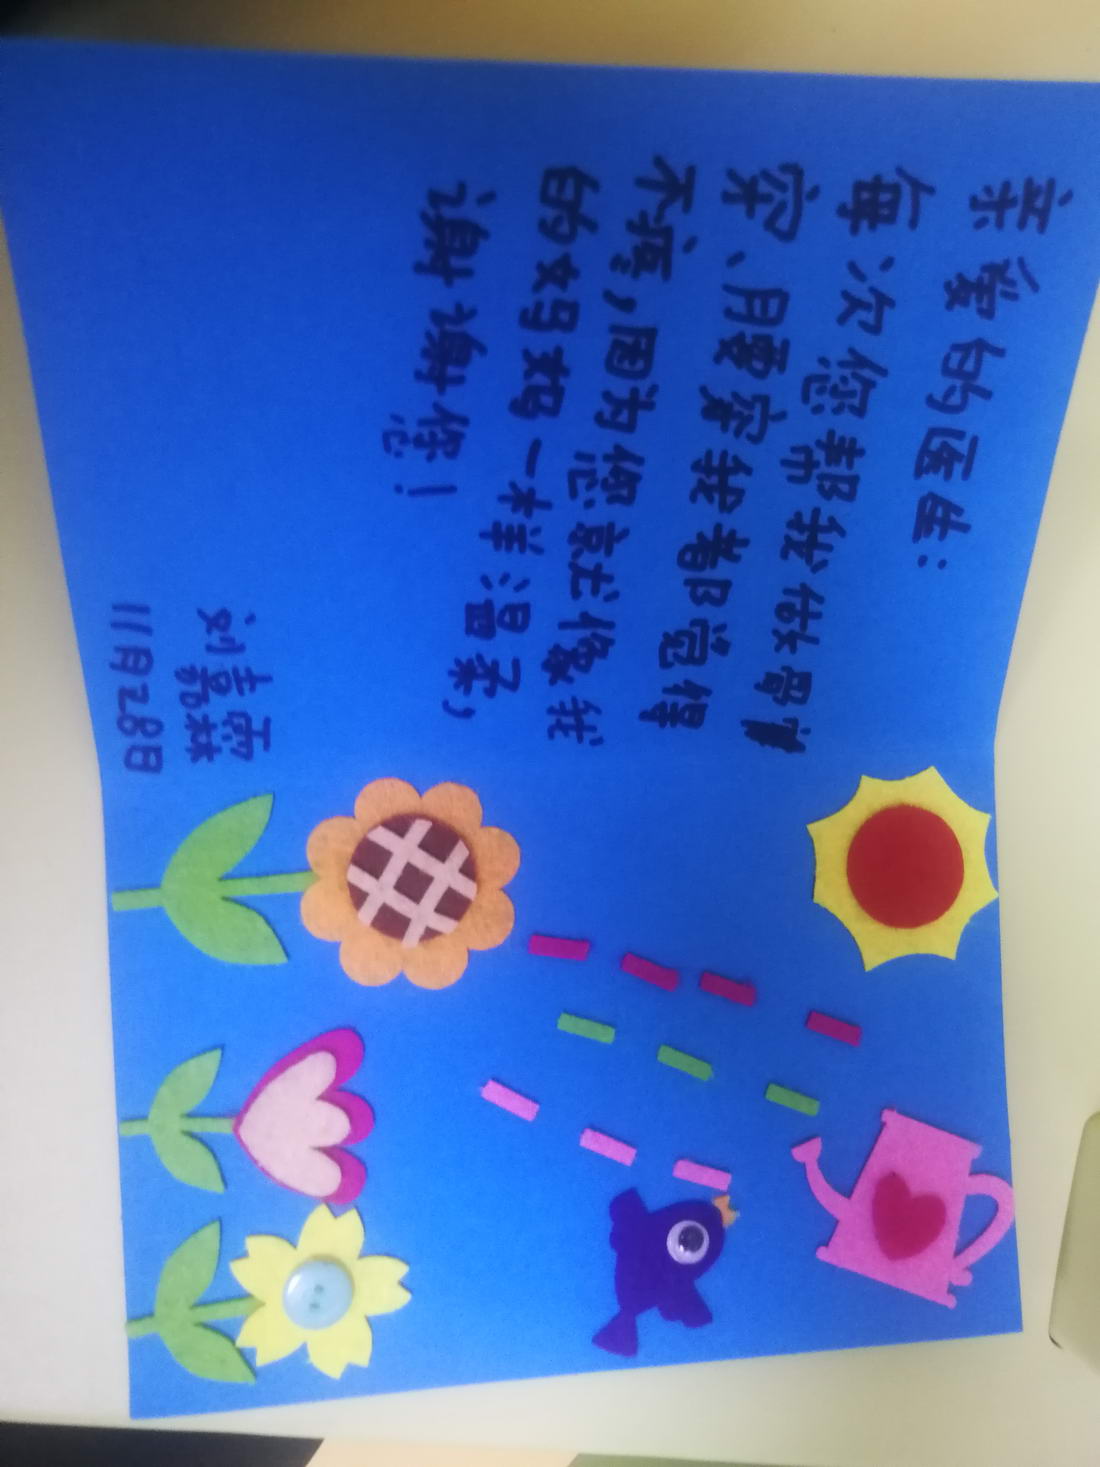 亲爱的医生：
每次您帮我做骨
穿、腰穿我都觉得
不疼，因为您就像我
的妈妈一样温柔，
谢谢您！
刘嘉霖
11月28日